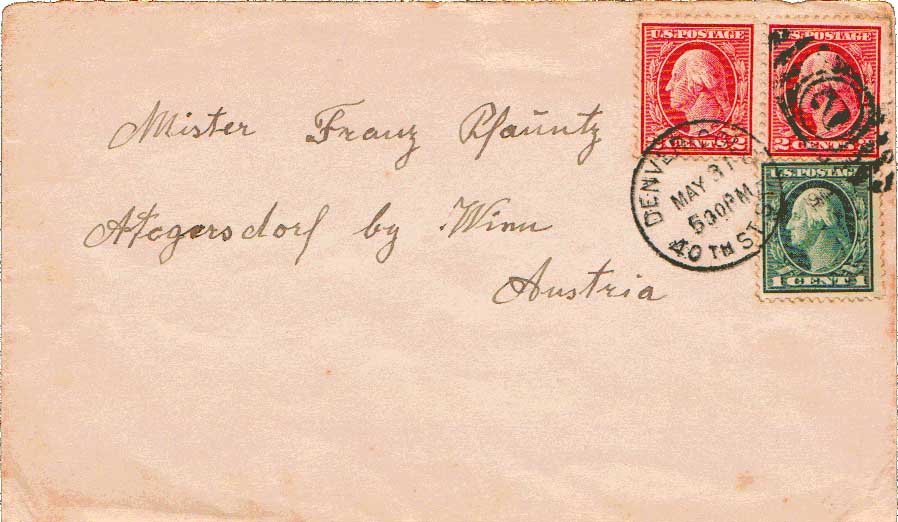 U.S. POSTAGE
U.S. POSTAGE
Mister Franz Pfauntz
2 CENTS 2
2 CENTS
DENVER
MAY 31
530PM
40TH ST.
U.S. POSTAGE
Atzgersdorf by Winn
1 CENT 1
Austria